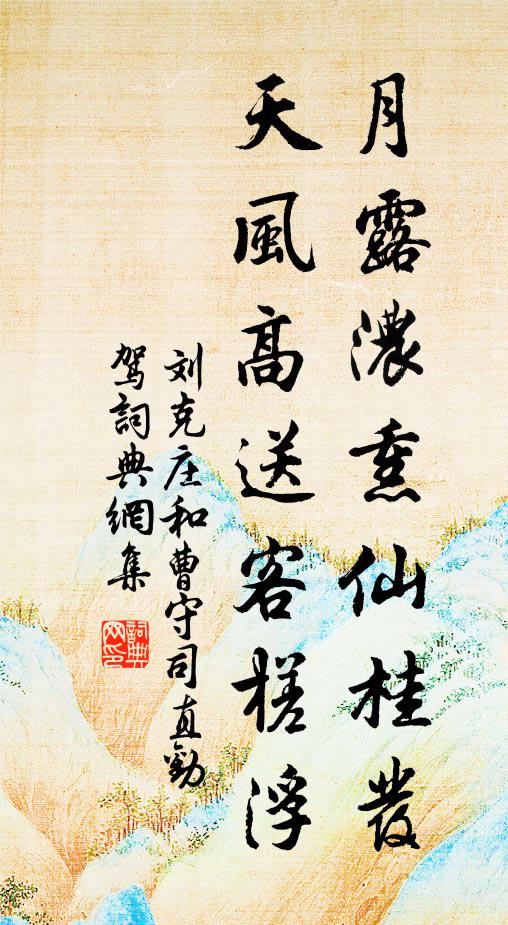 月露濃熏仙桂發
天風高送客槎浮
刘克庄和曹守司直勸
駕詞典網集
詞典
网印